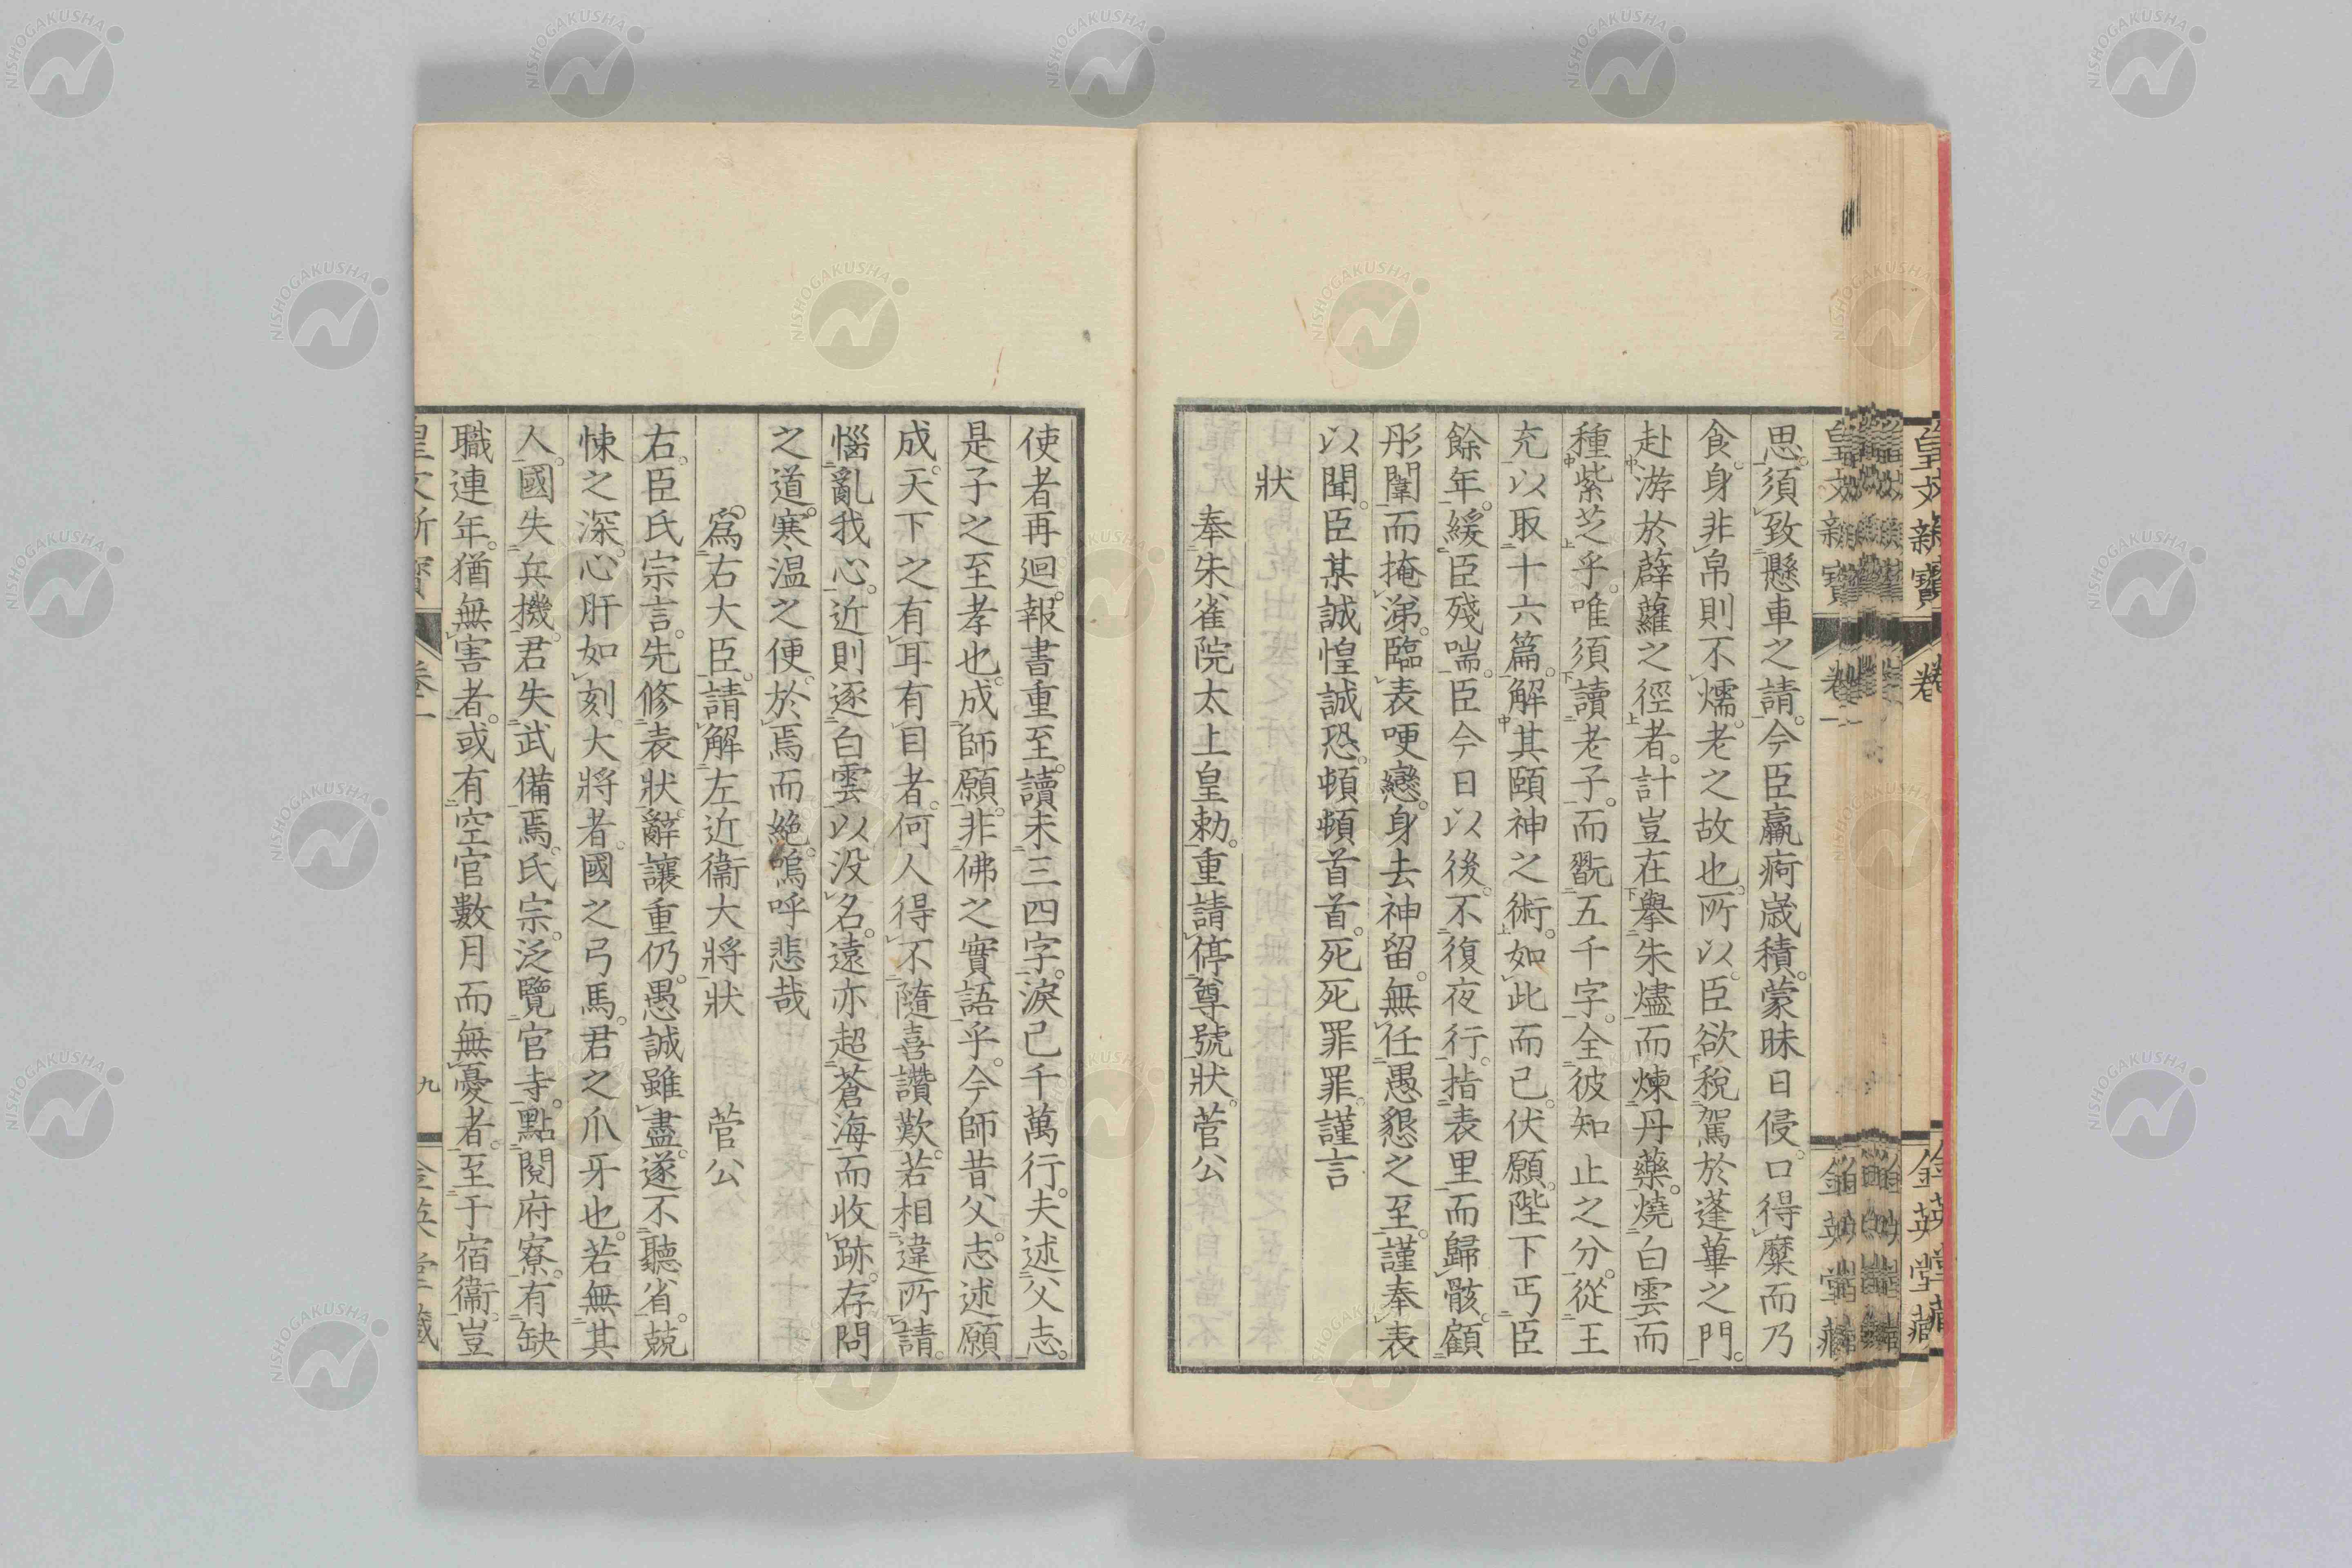 思。須致懸車之請。今臣羸痾歲積。蒙昧日侵。口得糜而乃
食。身非帛則不燸。老之故也。所以臣欲稅駕於蓬蓽之門。
赴游於薜蘿之徑者。計豈在擧朱燼而煉丹藥。燒白雲而
種紫芝乎。唯須讀老子。而翫五千字。全彼知止之分。從王
充以取十六篇。解其頤神之術。如此而已。伏願。陛下丐臣
餘年。緩臣殘喘。臣今日以後。不復夜行。指表里而歸骸。顧
彤闈而掩涕。臨表哽戀。身去神留。無任愚懇之至。謹奉表
以聞。臣某誠惶誠恐。頓頓首首。死死罪罪。謹言
狀
奉朱雀院太上皇勅。重請停尊號狀。菅公
使者再迴。報書重至。讀未三四字。淚已千萬行。夫述父志。
是子之至孝也。成師願。非佛之實語乎。今師昔父。志述願
成。天下之有耳有目者。何人得不隨喜讚歎。若相違所請。
惱亂我心。近則逐白雲以沒名。遠亦超蒼海而收跡。存問
之道。寒溫之便。於焉而絕。嗚呼悲哉
爲右大臣。請解左近衞大將狀 菅公
右。臣氏宗言。先修表狀。辭讓重仍。愚誠雖盡。遂不聽省。兢
悚之深。心肝如刻。大將者。國之弓馬。君之爪牙也。若無其
人。國失兵機。君失武備焉。氏宗。泛覽官寺。點閱府寮。有缺
職連年。猶無害者。或有空官數月而無憂者。至于宿衞。豈
皇文新寶 卷一 九 金英堂藏